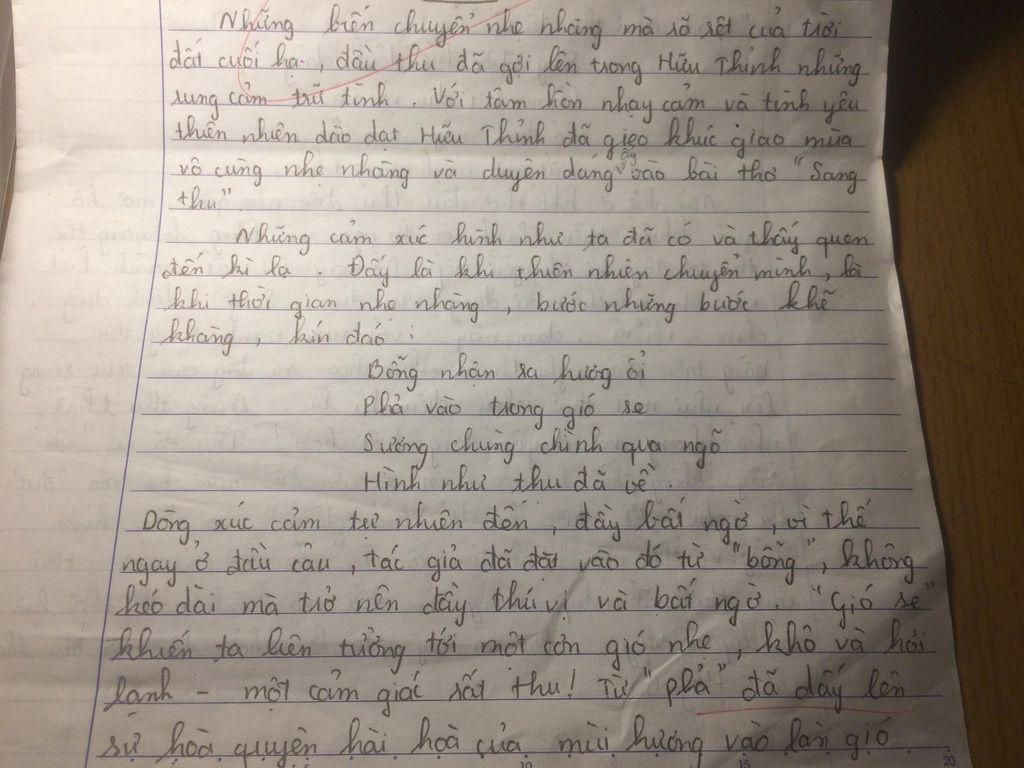 Những biến chuyển nhẹ nhàng mà rõ rệt của trời
đất cuối hạ, đầu thu đã gợi lên trong Hữu Thỉnh những
rung cảm trữ tình. Với tâm hồn nhạy cảm và tình yêu
thiên nhiên dào dạt Hữu Thỉnh đã gieo khúc giao mùa
vô cùng nhẹ nhàng và duyên dáng ấy vào bài thơ "Sang
thu"
Những cảm xúc hình như ta đã có và thấy quen
đến kì lạ. Đấy là khi thiên nhiên chuyển mình, là
khi thời gian nhẹ nhàng, bước những bước khẽ
khàng, kín đáo:
Bỗng nhận ra hương ổi
Phả vào trong gió se
Sương chùng chình qua ngõ
Hình như thu đã về
Dòng xúc cảm tự nhiên đến, đầy bất ngờ, vì thế
ngay ở đầu câu, tác giả đã đặt vào đó từ "bỗng", không
kéo dài mà trở nên đầy thú vị và bất ngờ. "Gió se"
khiến ta liên tưởng tới một cơn gió nhẹ, khô và hơi
lạnh - một cảm giác rất thu! Từ "phả" đã dấy lên
sự hoà quyện hài hoà của mùi hương vào làn gió
5 10 15 20